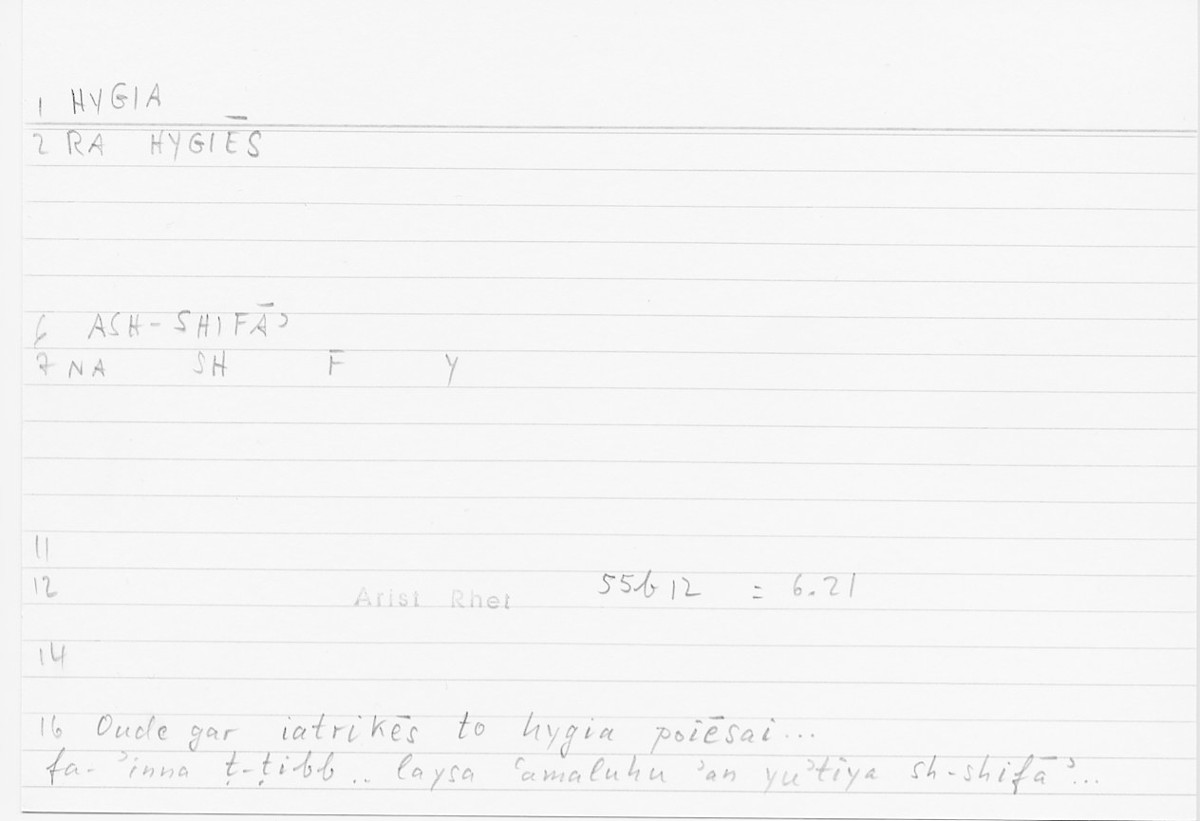 1 HYGIA
2 RA HYGIĒS
6 ASH-SHIFĀʾ
7 NA SH F Y
11
12 Arist Rhet 55b12 = 6.21
14
16 Oude gar iatrikēs to hygia poiēsai...
fa-ʾinna ṭ-ṭibb.. laysa ʿamaluhu ʾan yuʾtiya sh-shifāʾ...